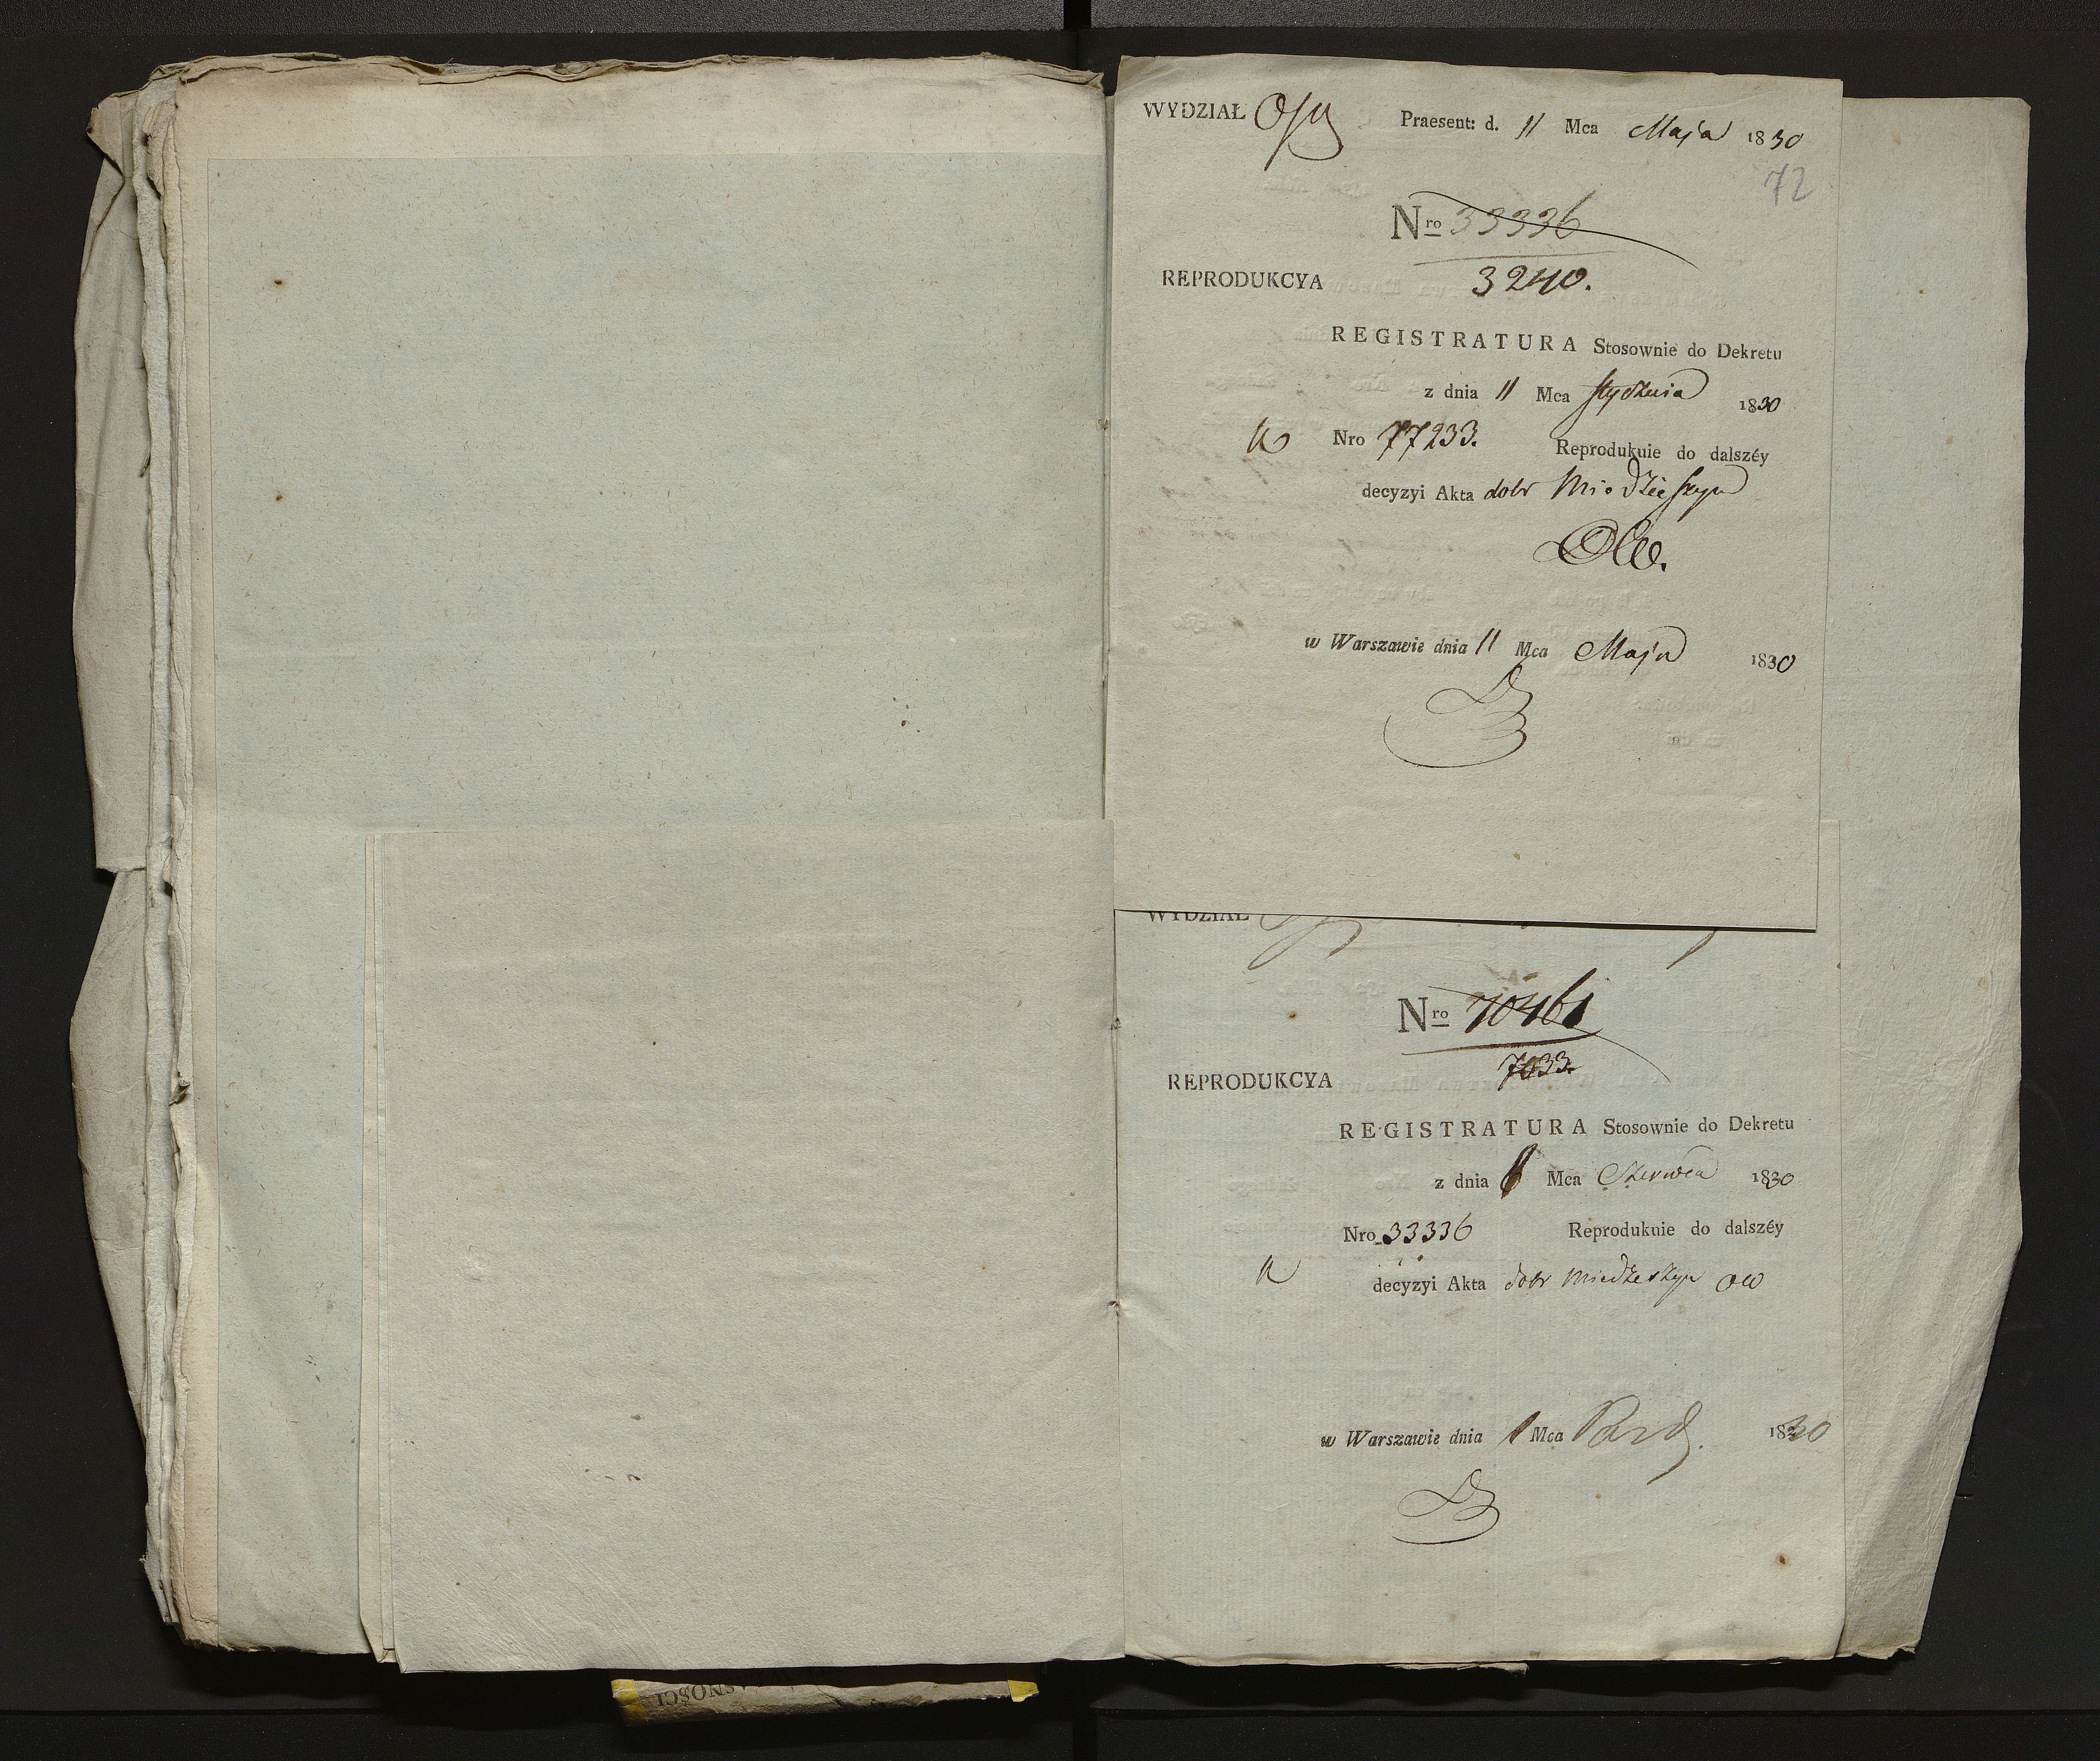 WYDZIAŁ Praesent: d. 11 Mca Maja 1830
72
Nro 33336
REPRODUKCYA 3240.
REGISTRATURA Stosownie do Dekretu
z dnia 11 Mca Stycznia 1830
Nro 77233. Reprodukuie do dalszéy
decyzyi Akta dobr Miedzieszyn
w Warszawie dnia 11 Mca Maja 1830
WYDZIAŁ
Nro 70461
7033.
REPRODUKCYA
REGISTRATURA Stosownie do Dekretu
z dnia Mca Czerwca 1830
Nro 33336 Reprodukuie do dalszéy
decyzyi Akta dobr Miedzeszyn
w Warszawie dnia 1 Mca Pazd. 1830